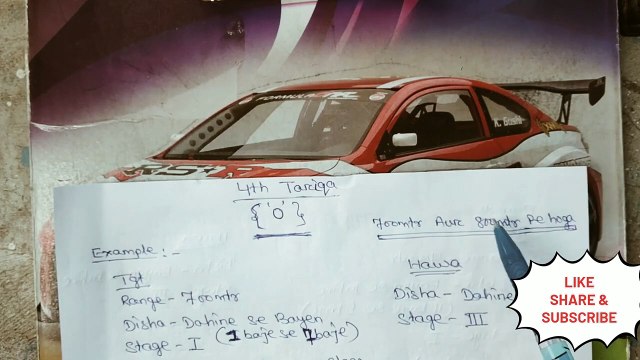 FORMULA
A. Smith
4th Tariqa
{'0'}
700mtr Aur 800mtr Pe hoga
Example:-
Tgt
Range - 700mtr
Disha - Dahine se Bayen
Stage - I (1 baje se 7 baje)
Hawa
Disha - Dahine
Stage - III
LIKE
SHARE &
SUBSCRIBE